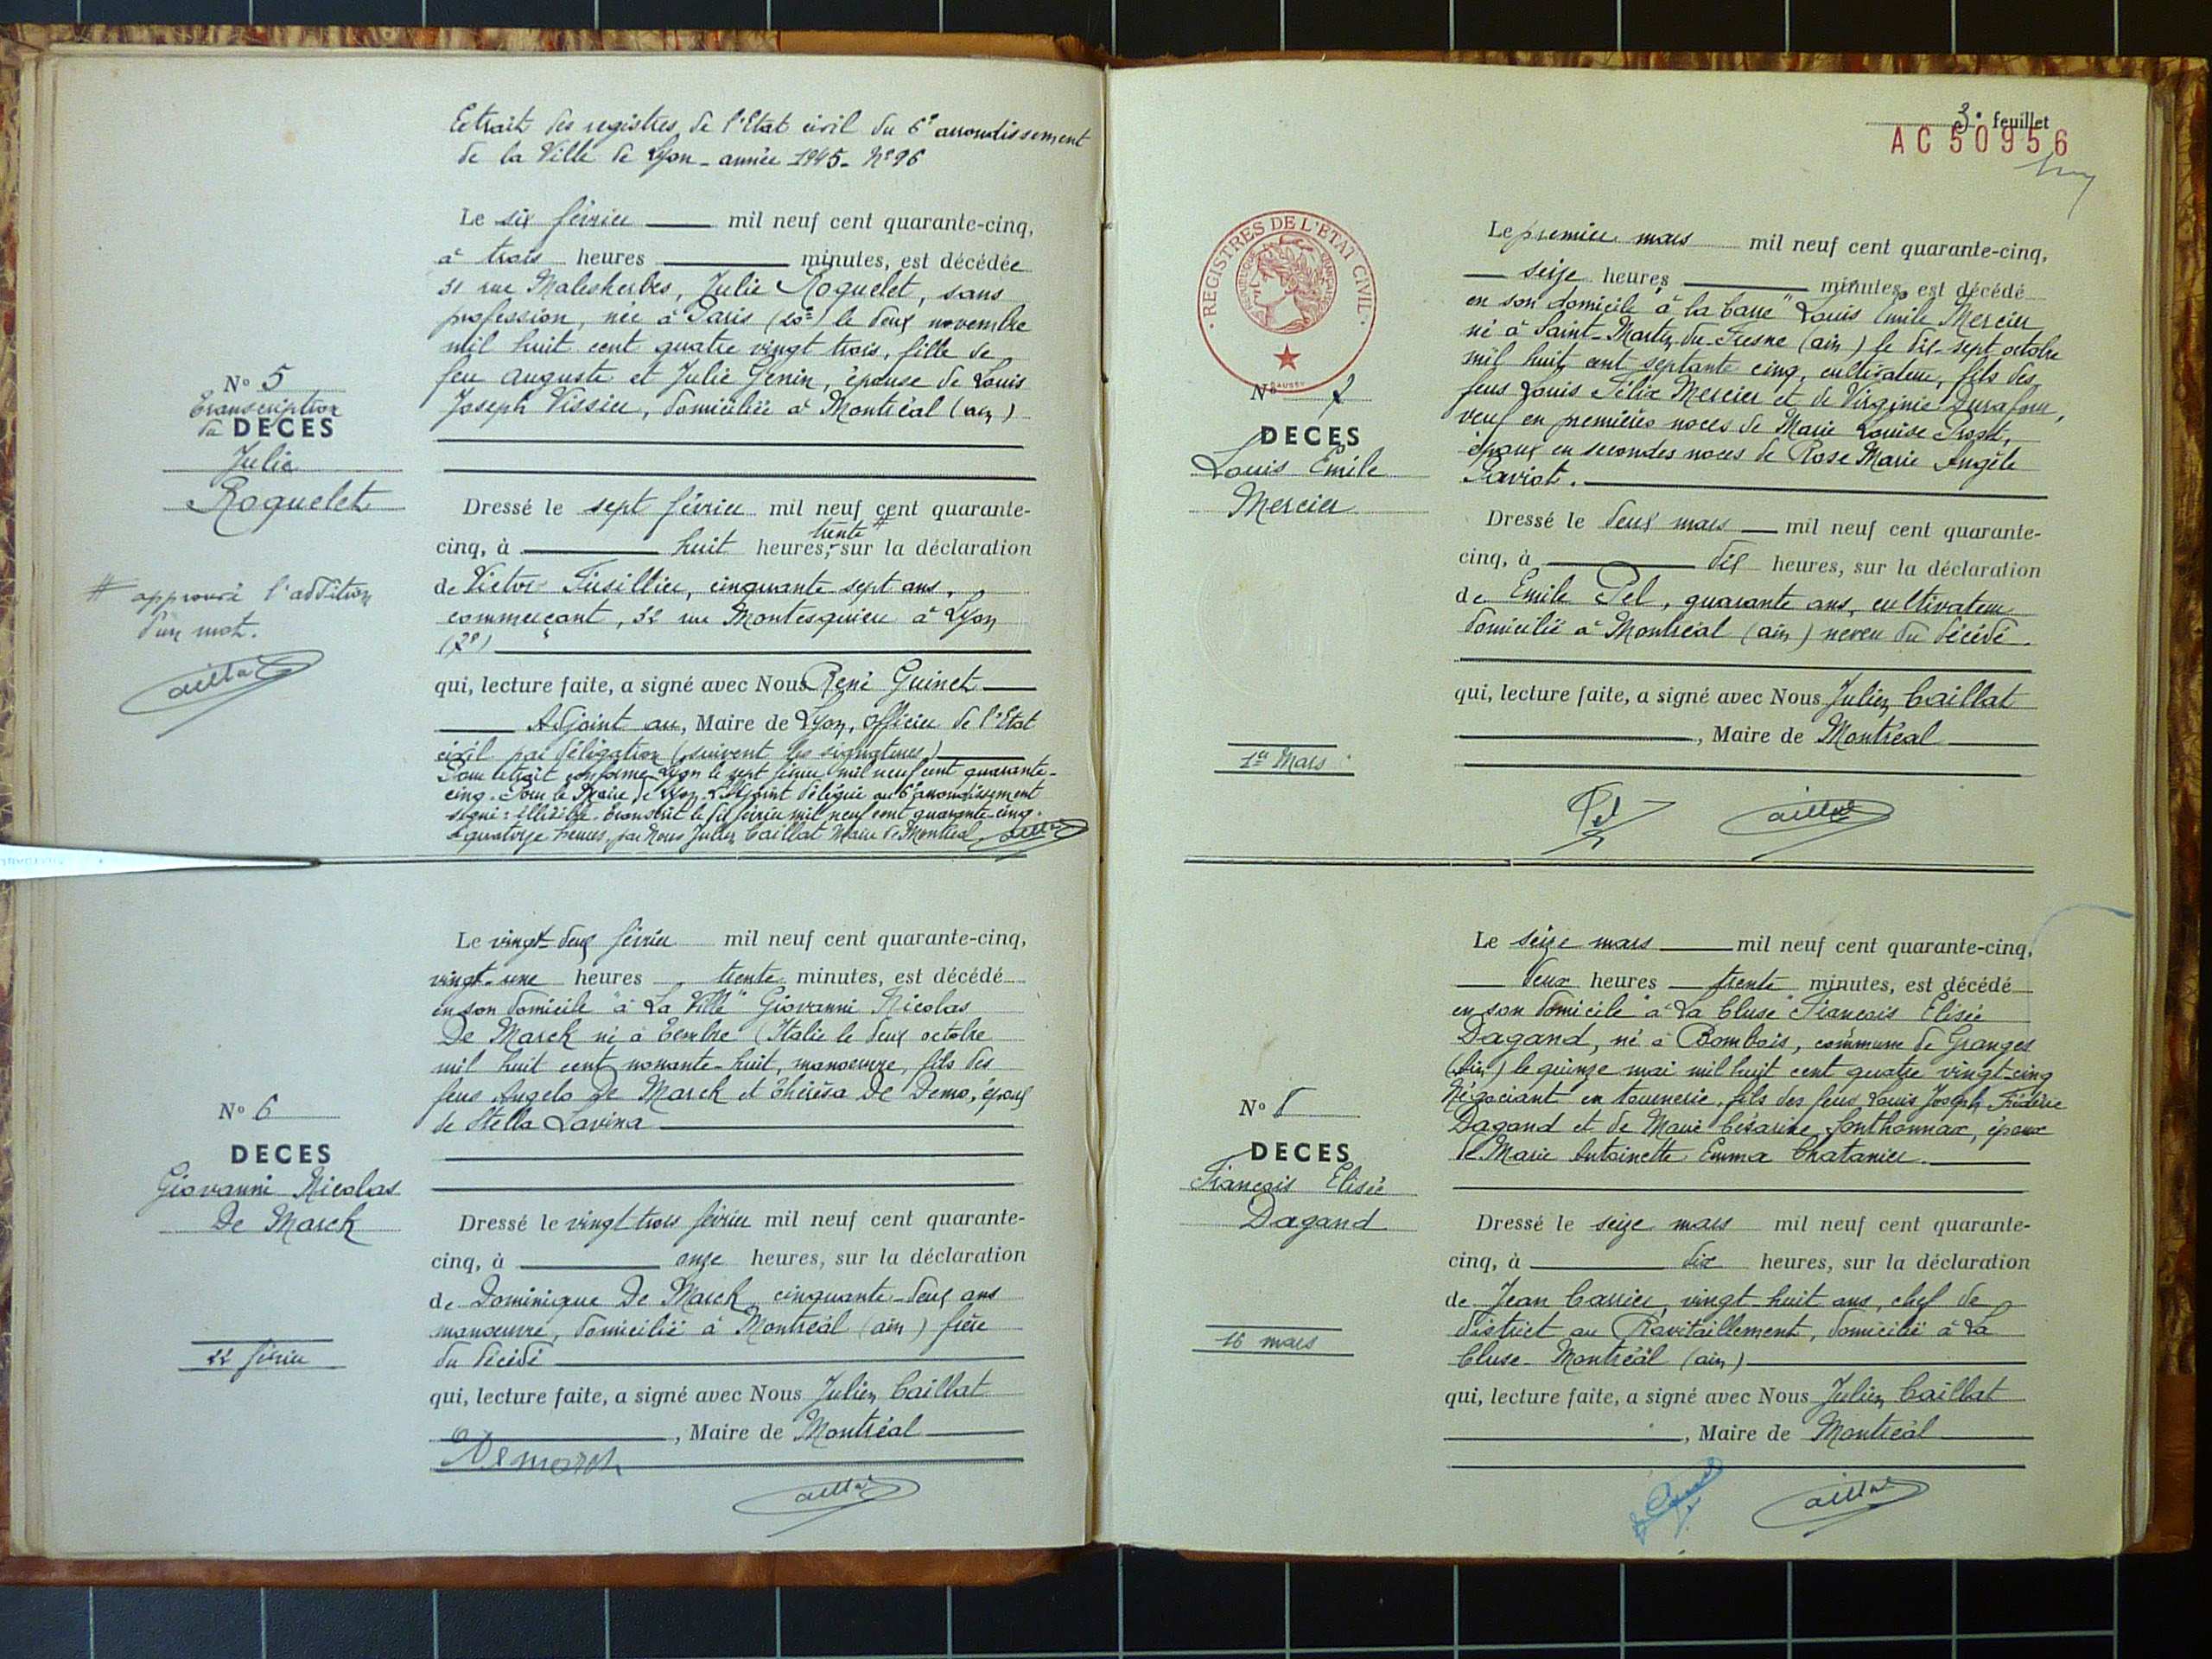 Extrait des registres de l'Etat civil du 6e arrondissement
de la Ville de Lyon - année 1945 - N° 96
Le six février mil neuf cent quarante-cinq,
à trois heures minutes, est décédée
31 rue Malesherbes, Julie Roquelet, sans
profession, née à Paris (20e) le deux novembre
mil huit cent quatre vingt trois, fille de
feu Auguste et Julie Genin, épouse de Louis
Joseph Vissier, domiciliée à Montréal (ain)
N° 5
Transcription
de DECES
Julie
Roquelet
Dressé le sept février mil neuf cent quarante-
trente #
cinq, à huit heures, sur la déclaration
de Victor Fusillier, cinquante sept ans,
commerçant, 32 rue Montesquieu à Lyon
(7e)
# approuvé l'addition
d'un mot.
qui, lecture faite, a signé avec Nous René Guinet
Adjoint au, Maire de Lyon, officier de l'Etat
civil par délégation (suivent les signatures)
Pour extrait conforme Lyon le sept février mil neuf cent quarante-
cinq. Pour le Maire de Lyon. L'Adjoint délégué au 6e arrondissement
signé : illisible. Transcrit le dix février mil neuf cent quarante-cinq.
à quatorze heures, par Nous Julien Caillat Maire de Montréal
Le vingt-deux février mil neuf cent quarante-cinq,
vingt-une heures trente minutes, est décédé
en son domicile "à La Ville" Giovanni Nicolas
De March né à (Italie le deux octobre
mil huit cent nonante-huit, manoeuvre, fils des
feus Angelo De March et Thérèsa De Demo, époux
de Stella Lavina
N° 6
DECES
Giovanni Nicolas
De March
22 février
Dressé le vingt trois février mil neuf cent quarante-
cinq, à onze heures, sur la déclaration
de Dominique De March cinquante-deux ans
manoeuvre, domicilié à Montréal (ain) frère
du décédé
qui, lecture faite, a signé avec Nous Julien Caillat
, Maire de Montréal
Demarch
3e feuillet
AC 50956
REGISTRES DE L'ETAT CIVIL
Le premier mars mil neuf cent quarante-cinq,
seize heures minutes, est décédé
en son domicile "à la Carre" Louis Emile Mercier
né à Saint-Martin-du-Fresne (ain) le dix-sept octobre
mil huit cent septante cinq, cultivateur, fils des
feus Louis Félix Mercier et de Virginie Durafour,
veuf en premières noces de Marie Louise Prost,
époux en secondes noces de Rose Marie Angèle
Paviot.
N° 7
DECES
Louis Emile
Mercier
1er Mars
Dressé le deux mars mil neuf cent quarante-
cinq, à dix heures, sur la déclaration
de Emile Pel, quarante ans, cultivateur
domicilié à Montréal (ain) neveu du décédé.
qui, lecture faite, a signé avec Nous Julien Caillat
, Maire de Montréal
Pel
Le seize mars mil neuf cent quarante-cinq,
deux heures trente minutes, est décédé
en son domicile "à La Cluse" François Elisée
Dagand, né à Bombois, commune de Granges
(Ain) le quinze mai mil huit cent quatre vingt-cinq
Négociant en tournerie, fils des feus Louis Joseph Frédéric
Dagand et de Marie Césarine Sonthonnax, époux
de Marie Antoinette Emma Chatanier.
N° 8
DECES
François Elisée
Dagand
16 mars
Dressé le seize mars mil neuf cent quarante-
cinq, à dix heures, sur la déclaration
de Jean Carrier, vingt-huit ans, chef de
district au Ravitaillement, domicilié à La
Cluse - Montréal (ain)
qui, lecture faite, a signé avec Nous Julien Caillat
, Maire de Montréal